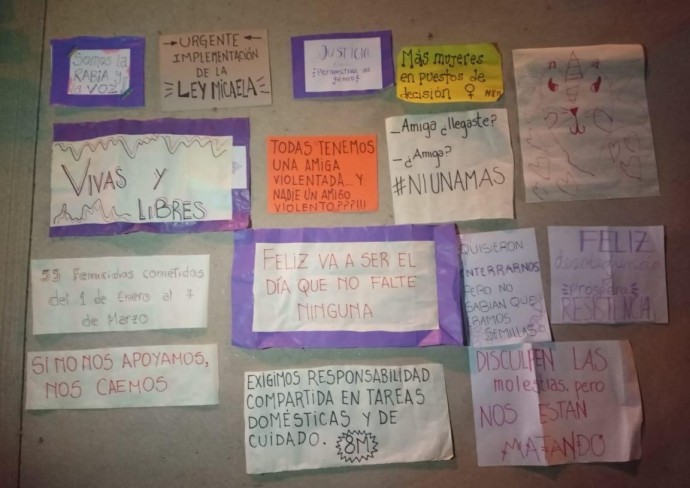 Somos la
RABIA y
la VOZ
URGENTE
IMPLEMENTACIÓN
DE LA
LEY MICAELA
JUSTICIA
Perspectiva de
género
Más mujeres
en puestos de
decisión ♀
VIVAS Y
LIBRES
TODAS TENEMOS
UNA AMIGA
VIOLENTADA... Y
NADIE UN AMIGO
VIOLENTO???!!!
_Amiga ¿llegaste?
_¿Amiga?
#NIUNAMAS
Femicidios cometidos
del 1 de Enero al 7
de Marzo
FELIZ VA A SER EL
DÍA QUE NO FALTE
NINGUNA
QUISIERON
ENTERRARNOS
PERO NO
SABIAN QUE
ERAMOS
SEMILLAS
FELIZ
y
RESISTENCIA
SI NO NOS APOYAMOS,
NOS CAEMOS
EXIGIMOS RESPONSABILIDAD
COMPARTIDA EN TAREAS
DOMÉSTICAS Y DE
CUIDADO. 8M
DISCULPEN LAS
molestias, pero
NOS ESTAN
MATANDO